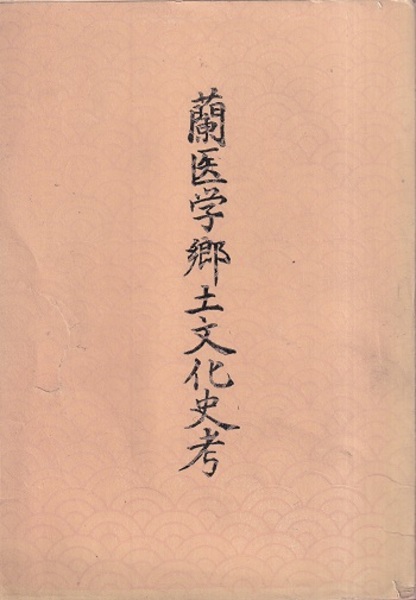 蘭医学郷土文化史考